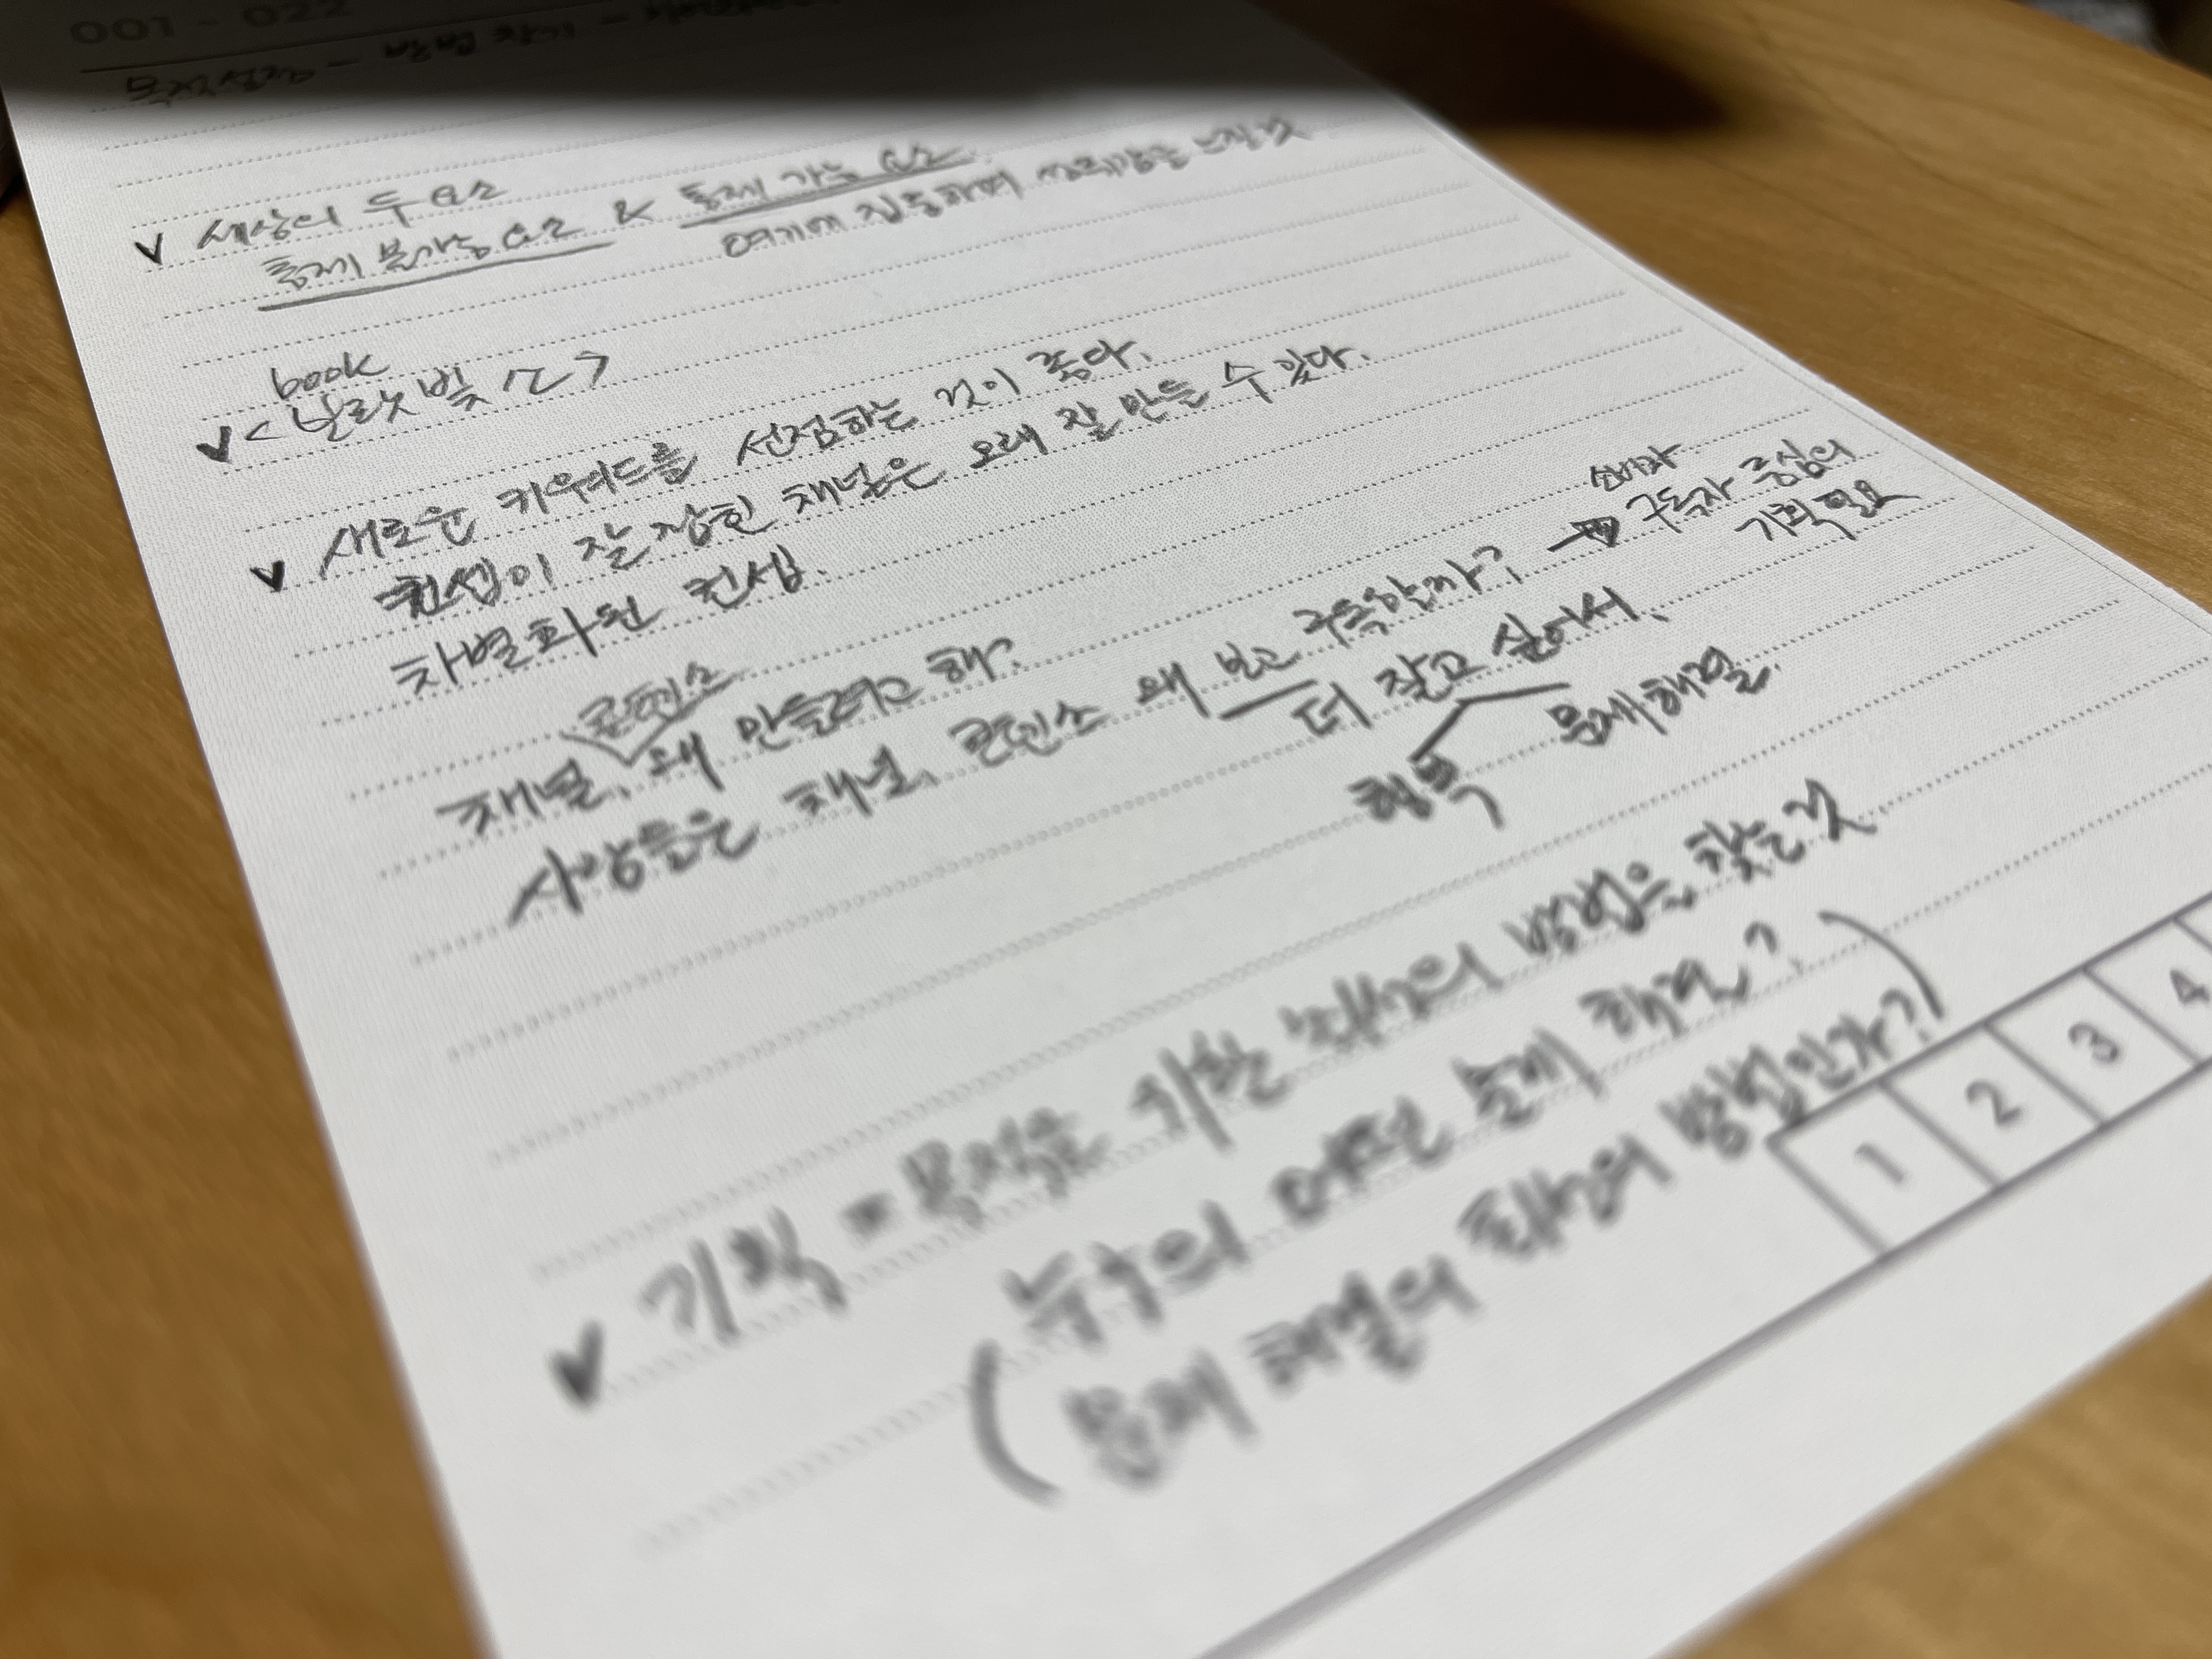 001 - 022
목적 설정 - 방법 찾기 -
✓ 세상의 두 요소
통제 불가능 요소 & 통제 가능 요소
여기에 집중하며 성취감을 느낄 것
book
✓ <날랏빛
✓ 새로운 키워드를 선점하는 것이 좋다.
컨셉이 잘 잡힌 채널은 오래 잘 만들 수 있다.
차별화된 컨셉.
콘텐츠
채널, 왜 만들려고 해?
사람들은 채널, 콘텐츠 왜 보고 구독할까? → 구독자 중심의
소비자
기획 필요
더 잘 살고 싶어서.
행복 문제해결.
✓ 기획 = 목적을 위한 최상의 방법을 찾는 것
(누구의 어떤 문제 해결?
문제 해결의 최선의 방법인가?)
1 2 3 4